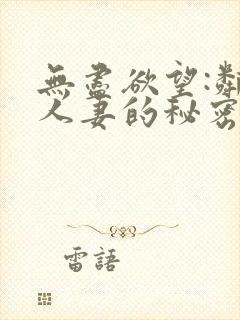 無盡欲望:鄰
人妻的秘密
雷語